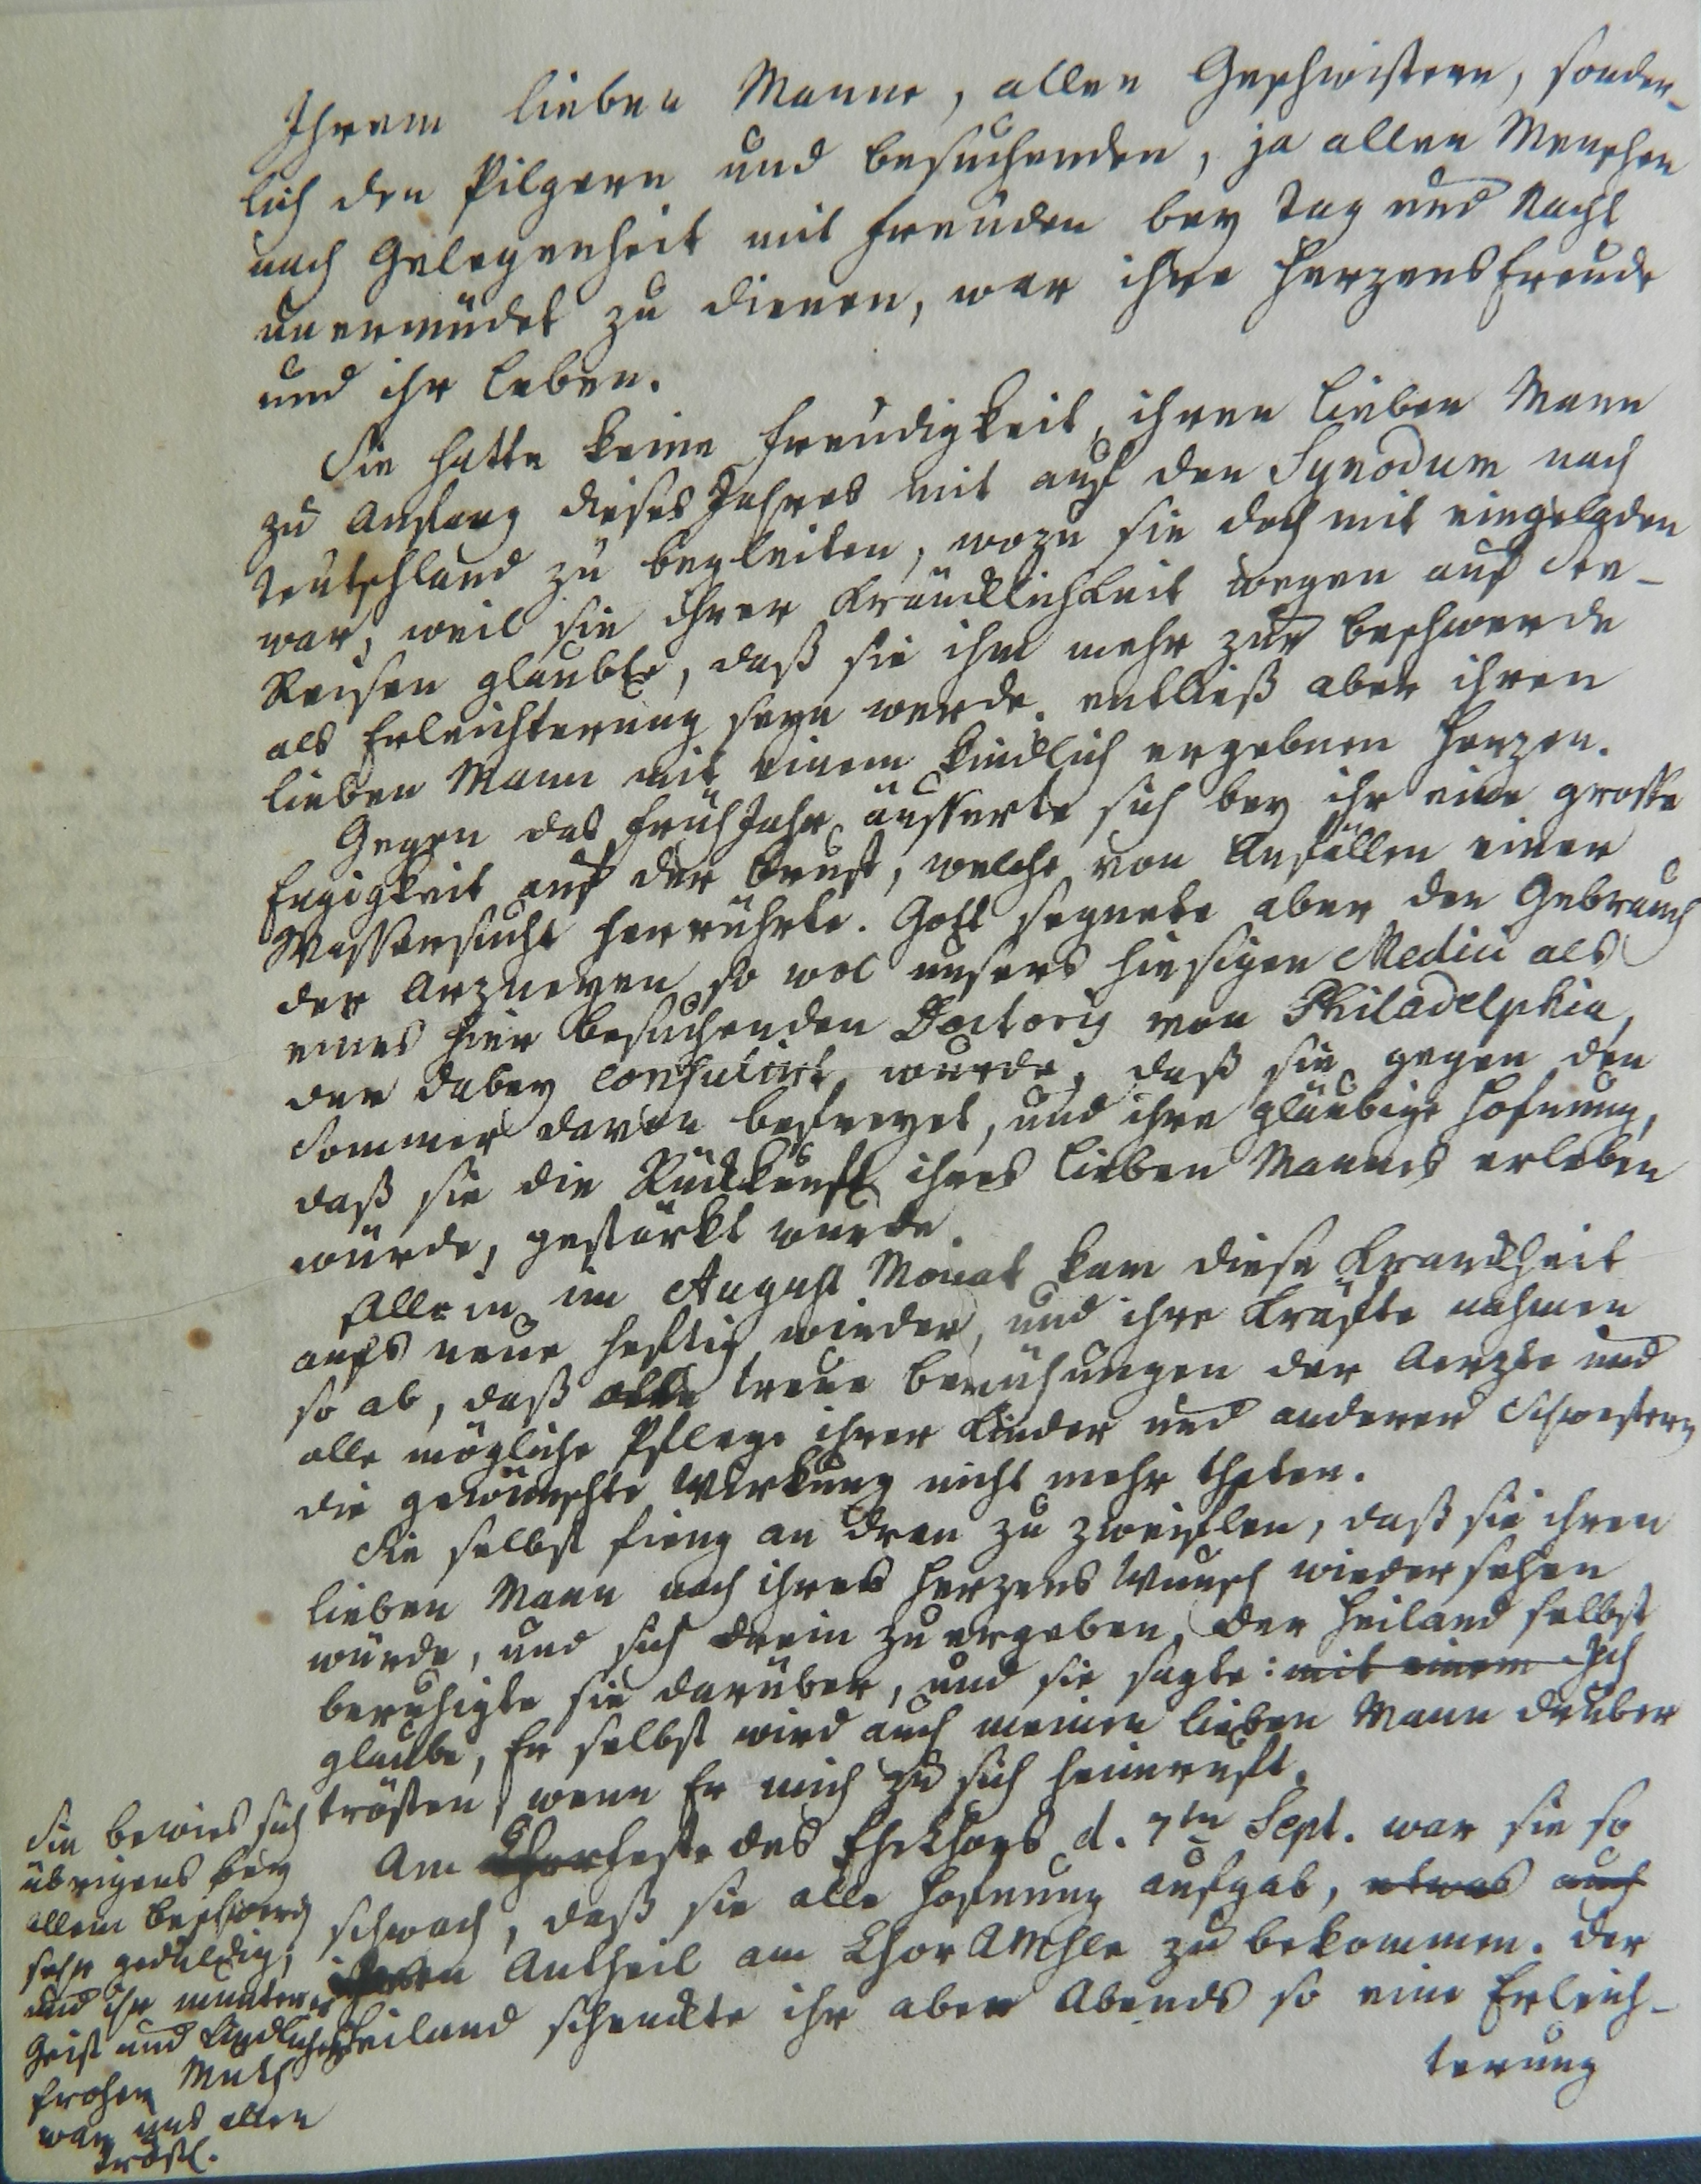 Ihrem lieben Manne, allen Geschwistern, sonder-
lich den Pilgern und besuchenden, ja allen Menschen
nach Gelegenheit mit Freuden bey Tag und Nacht
unermüdet zu dienen, war ihre Herzensfreude
und ihr Leben.
Sie hatte keine Freudigkeit, ihren lieben Mann
zu Anfang dieses Jahres mit auf den Synodum nach
Teutschland zu begleiten, wozu sie doch mit eingeladen
war, weil sie ihrer Kräncklichkeit wegen auf See-
Reisen glaubte, daß sie ihm mehr zur Beschwerde
als Erleichterung seyn werde, entließ aber ihren
lieben Mann mit einem kindlich ergebnen Herzen.
Gegen das Früh Jahr äusserte sich bey ihr eine grosse
Engigkeit auf der Brust, welche von Anfällen einer
Wassersucht herrührte. Gott segnete aber den Gebrauch
der Arzneyen so wol unsers hiesigen Medici als
eines hier besuchenden Doctoris von Philadelphia,
der dabey consulirt wurde, daß sie gegen den
Sommer davon befreyet, und ihre gläubige Hofnung,
daß sie die Rückkunft ihres lieben Mannes erleben
würde, gestärkt wurde.
Allein im August Monat kam diese Kranckheit
aufs neue heftig wieder, und ihre Kräfte nahmen
so ab, daß alle treue Bemühungen der Aerzte und
alle mögliche Pflege ihrer Kinder und anderer Schwestern
die gewünschte Wirkung nicht mehr thaten.
Sie selbst fieng an dran zu zweiflen, daß sie ihren
lieben Mann nach ihres Herzens Wunsch wiedersehen
würde, und sich drein zu ergeben. Der Heiland selbst
beruhigte sie darüber, und sie sagte: mit einem Ich
glaube, Er selbst wird auch meinen lieben Mann drüber
trösten, wenn Er mich zu sich heimruft.
Am Chorfeste des Ehe Chors d. 7ten Sept. war sie so
schwach, daß sie alle Hofnung aufgab, etwas auch
Antheil am Chor AMhle zu bekommen. Der
Heiland schenckte ihr aber Abends so eine Erleich-
terung
Sie bewies sich
übrigens bey
allem Beschwerden
sehr geduldig,
und ihr munterer
Geist und kindlicher
froher Muth
war uns allen
tröstl.